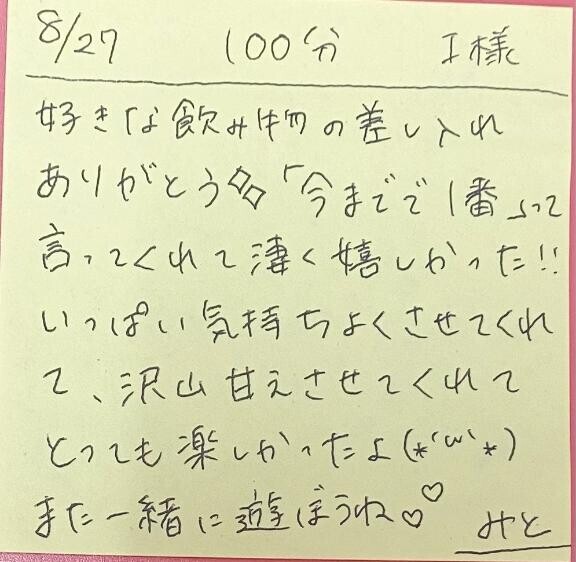 8/27 100分 I様
好きな飲み物の差し入れ
ありがとう◇◇「今までで1番」って
言ってくれて凄く嬉しかった!!
いっぱい気持ちよくさせてくれ
て、沢山甘えさせてくれて
とっても楽しかったよ(*´ω`*)
また一緒に遊ぼうね♡♡ みと